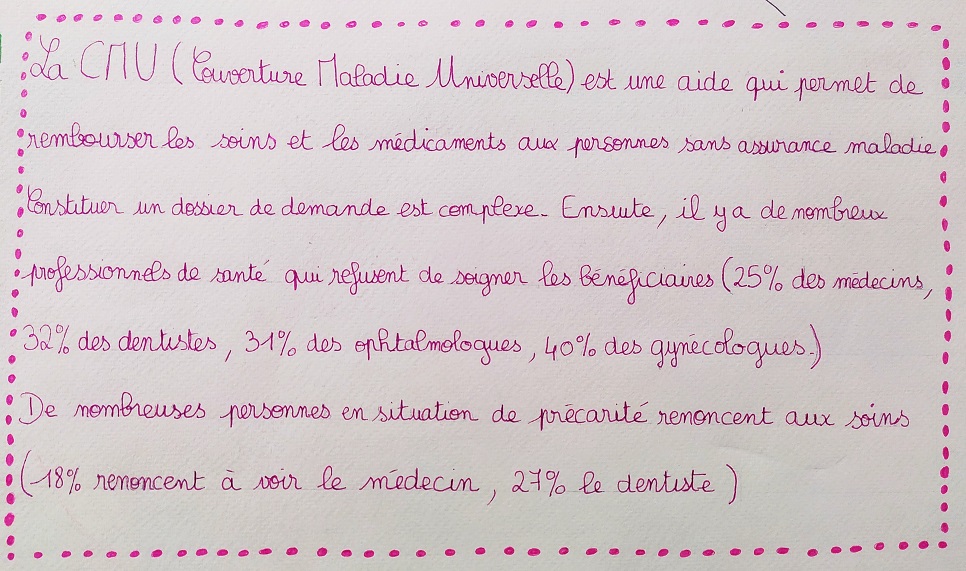 La CMU (Couverture Maladie Universelle) est une aide qui permet de
rembourser les soins et les médicaments aux personnes sans assurance maladie.
Constituer un dossier de demande est complexe. Ensuite, il y a de nombreux
professionnels de santé qui refusent de soigner les bénéficiaires (25% des médecins,
32% des dentistes, 31% des ophtalmologues, 40% des gynécologues.)
De nombreuses personnes en situation de précarité renoncent aux soins
(18% renoncent à voir le médecin, 27% le dentiste)